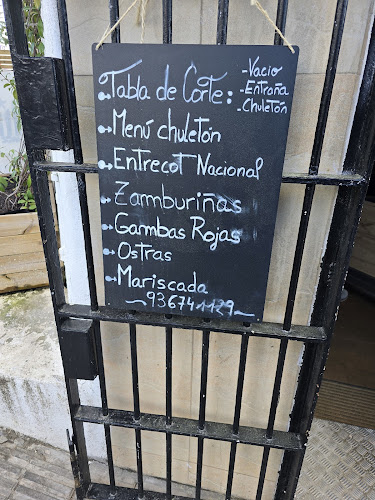 Tabla de Corte:
- Vacio
- Entraña
- Chuletón
Menú chuletón
Entrecot Nacional
Zamburiñas
Gambas Rojas
Ostras
Mariscada
~ 936741129 ~